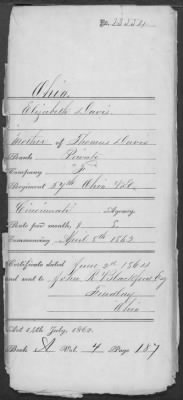 No. 23224
Ohio
Elizabeth Davis
Mother of Thomas Davis
Rank Private
Company "F"
Regiment 57th Ohio Vol.
Cincinnati Agency.
Rate per month, $ 8
Commencing April 8th 1862
Certificate dated June 2nd 1864
and sent to John R.
Findlay
Ohio
Act 14th July, 1862.
Book A Vol. 4 Page 187